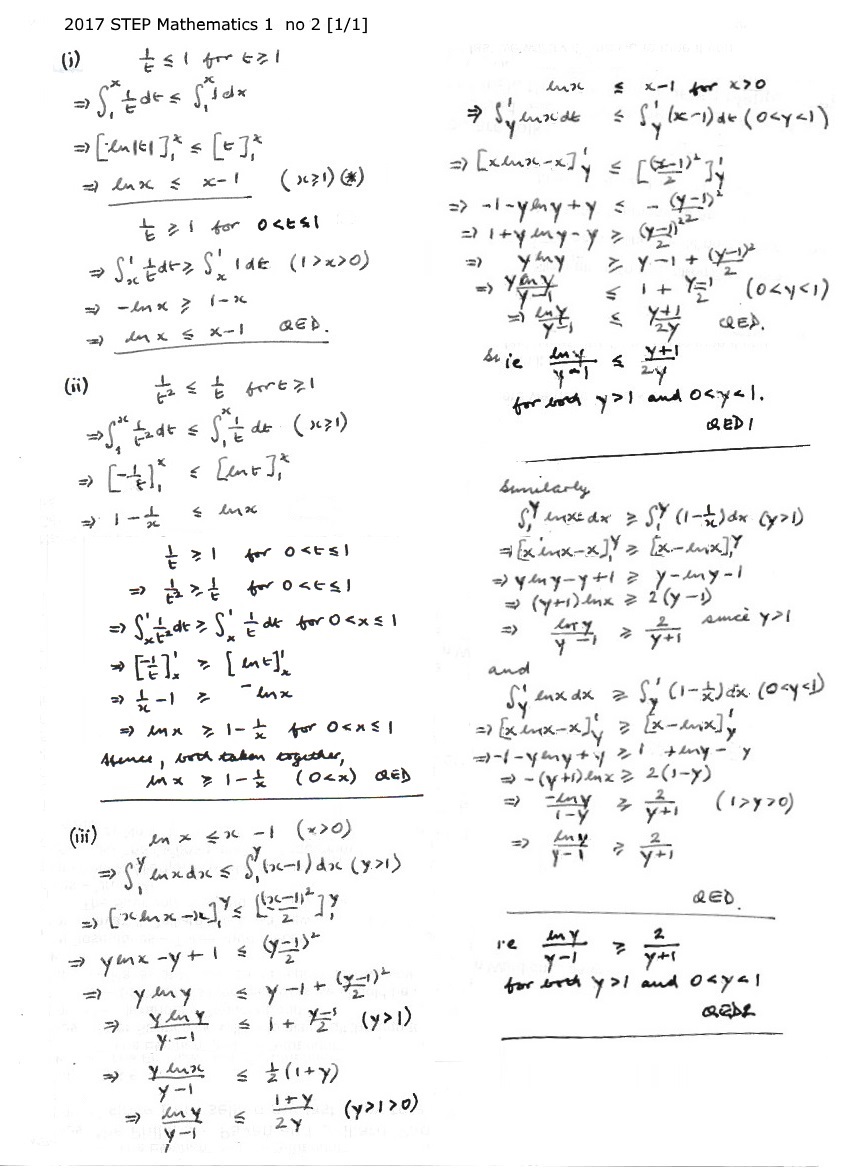 2017 STEP Mathematics 1 no 2 [1/1]
(i) 1/t ≤ 1 for t ≥ 1
⇒ ∫₁ˣ 1/t dt ≤ ∫₁ˣ 1 dx
⇒ [ln|t|]₁ˣ ≤ [t]₁ˣ
⇒ ln x ≤ x-1 (x≥1) (*)
1/t ≥ 1 for 0<t≤1
⇒ ∫ₓ¹ 1/t dt ≥ ∫ₓ¹ 1 dt (1>x>0)
⇒ -ln x ≥ 1-x
⇒ ln x ≤ x-1 QED.
(ii) 1/t² ≤ 1/t for t ≥ 1
⇒ ∫₁ˣ 1/t² dt ≤ ∫₁ˣ 1/t dt (x≥1)
⇒ [-1/t]₁ˣ ≤ [ln t]₁ˣ
⇒ 1 - 1/x ≤ ln x
1/t ≥ 1 for 0<t≤1
⇒ 1/t² ≥ 1/t for 0<t≤1
⇒ ∫ₓ¹ 1/t² dt ≥ ∫ₓ¹ 1/t dt for 0<x≤1
⇒ [-1/t]ₓ¹ ≥ [ln t]ₓ¹
⇒ 1/x - 1 ≥ -ln x
⇒ ln x ≥ 1 - 1/x for 0<x≤1
Hence, both taken together,
ln x ≥ 1 - 1/x (0<x) QED
(iii) ln x ≤ x-1 (x>0)
⇒ ∫₁ʸ ln x dx ≤ ∫₁ʸ (x-1) dx (y>1)
⇒ [x ln x - x]₁ʸ ≤ [(x-1)²/2]₁ʸ
⇒ y ln x - y + 1 ≤ (y-1)²/2
⇒ y ln y ≤ y-1 + (y-1)²/2
⇒ y ln y/(y-1) ≤ 1 + (y-1)/2 (y>1)
⇒ y ln x/(y-1) ≤ 1/2 (1+y)
⇒ ln y/(y-1) ≤ (1+y)/2y (y>1>0)
ln x ≤ x-1 for x>0
⇒ ∫ᵧ¹ ln x dt ≤ ∫ᵧ¹ (x-1) dt (0<y<1)
⇒ [x ln x - x]ᵧ¹ ≤ [(x-1)²/2]ᵧ¹
⇒ -1 - y ln y + y ≤ -(y-1)²/2
⇒ 1 + y ln y - y ≥ (y-1)²/2
⇒ y ln y ≥ y-1 + (y-1)²/2
⇒ y ln y/(y-1) ≤ 1 + (y-1)/2 (0<y<1)
⇒ ln y/(y-1) ≤ (y+1)/2y QED.
ie ln y/(y-1) ≤ (y+1)/2y
for both y>1 and 0<y<1.
QED1
Similarly
∫₁ʸ ln x dx ≥ ∫₁ʸ (1 - 1/x) dx (y>1)
⇒ [x ln x - x]₁ʸ ≥ [x - ln x]₁ʸ
⇒ y ln y - y + 1 ≥ y - ln y - 1
⇒ (y+1) ln x ≥ 2(y-1)
⇒ ln y/(y-1) ≥ 2/(y+1) since y>1
and
∫ᵧ¹ ln x dx ≥ ∫ᵧ¹ (1 - 1/x) dx (0<y<1)
⇒ [x ln x - x]ᵧ¹ ≥ [x - ln x]ᵧ¹
⇒ -1 - y ln y + y ≥ 1 + ln y - y
⇒ -(y+1) ln x ≥ 2(1-y)
⇒ -ln y/(1-y) ≥ 2/(y+1) (1>y>0)
⇒ ln y/(y-1) ≥ 2/(y+1)
QED.
i.e ln y/(y-1) ≥ 2/(y+1)
for both y>1 and 0<y<1
QED2